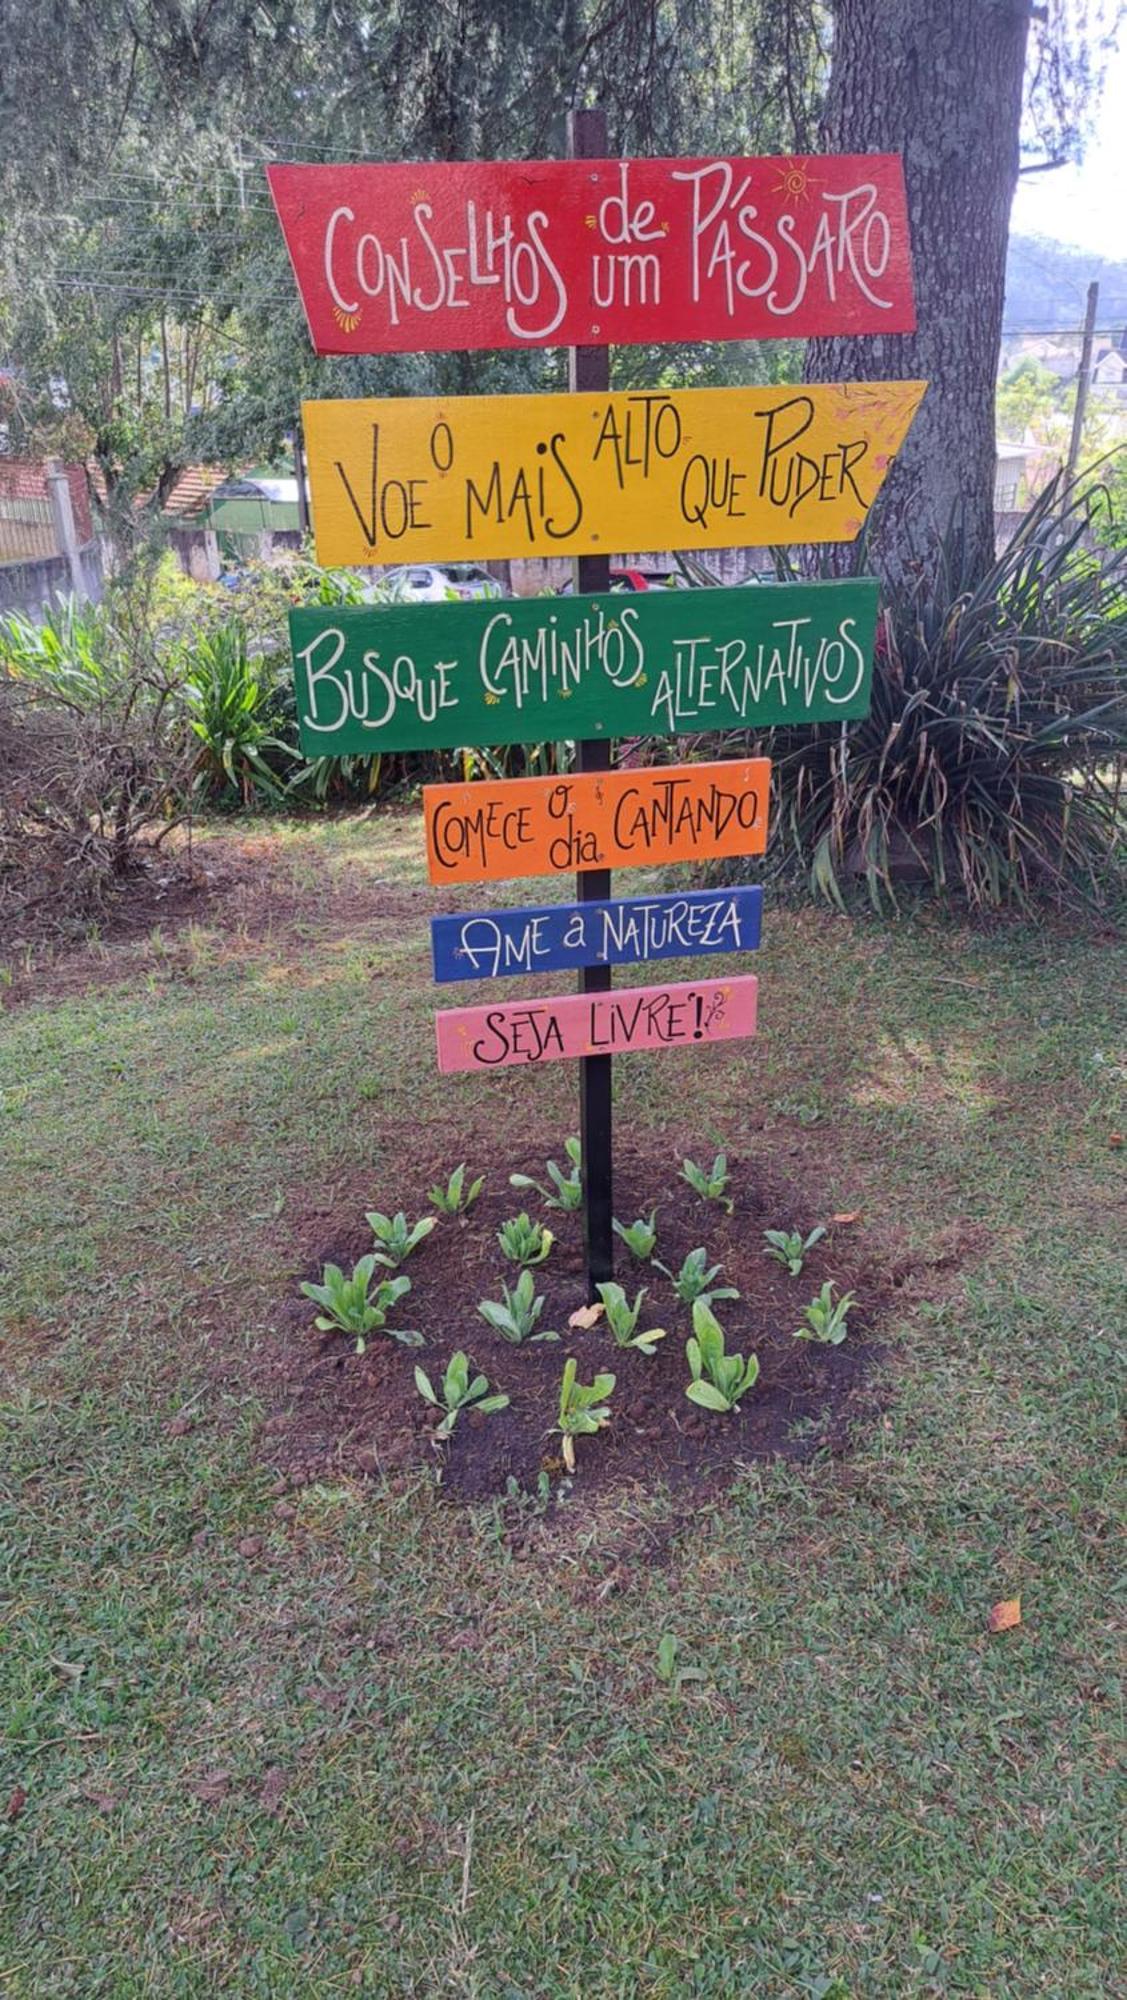 CONSELHOS de um PÁSSARO
VOE O MAIS ALTO QUE PUDER
BUSQUE CAMINHOS ALTERNATIVOS
COMECE O dia CANTANDO
AME a NATUREZA
SEJA LIVRE!